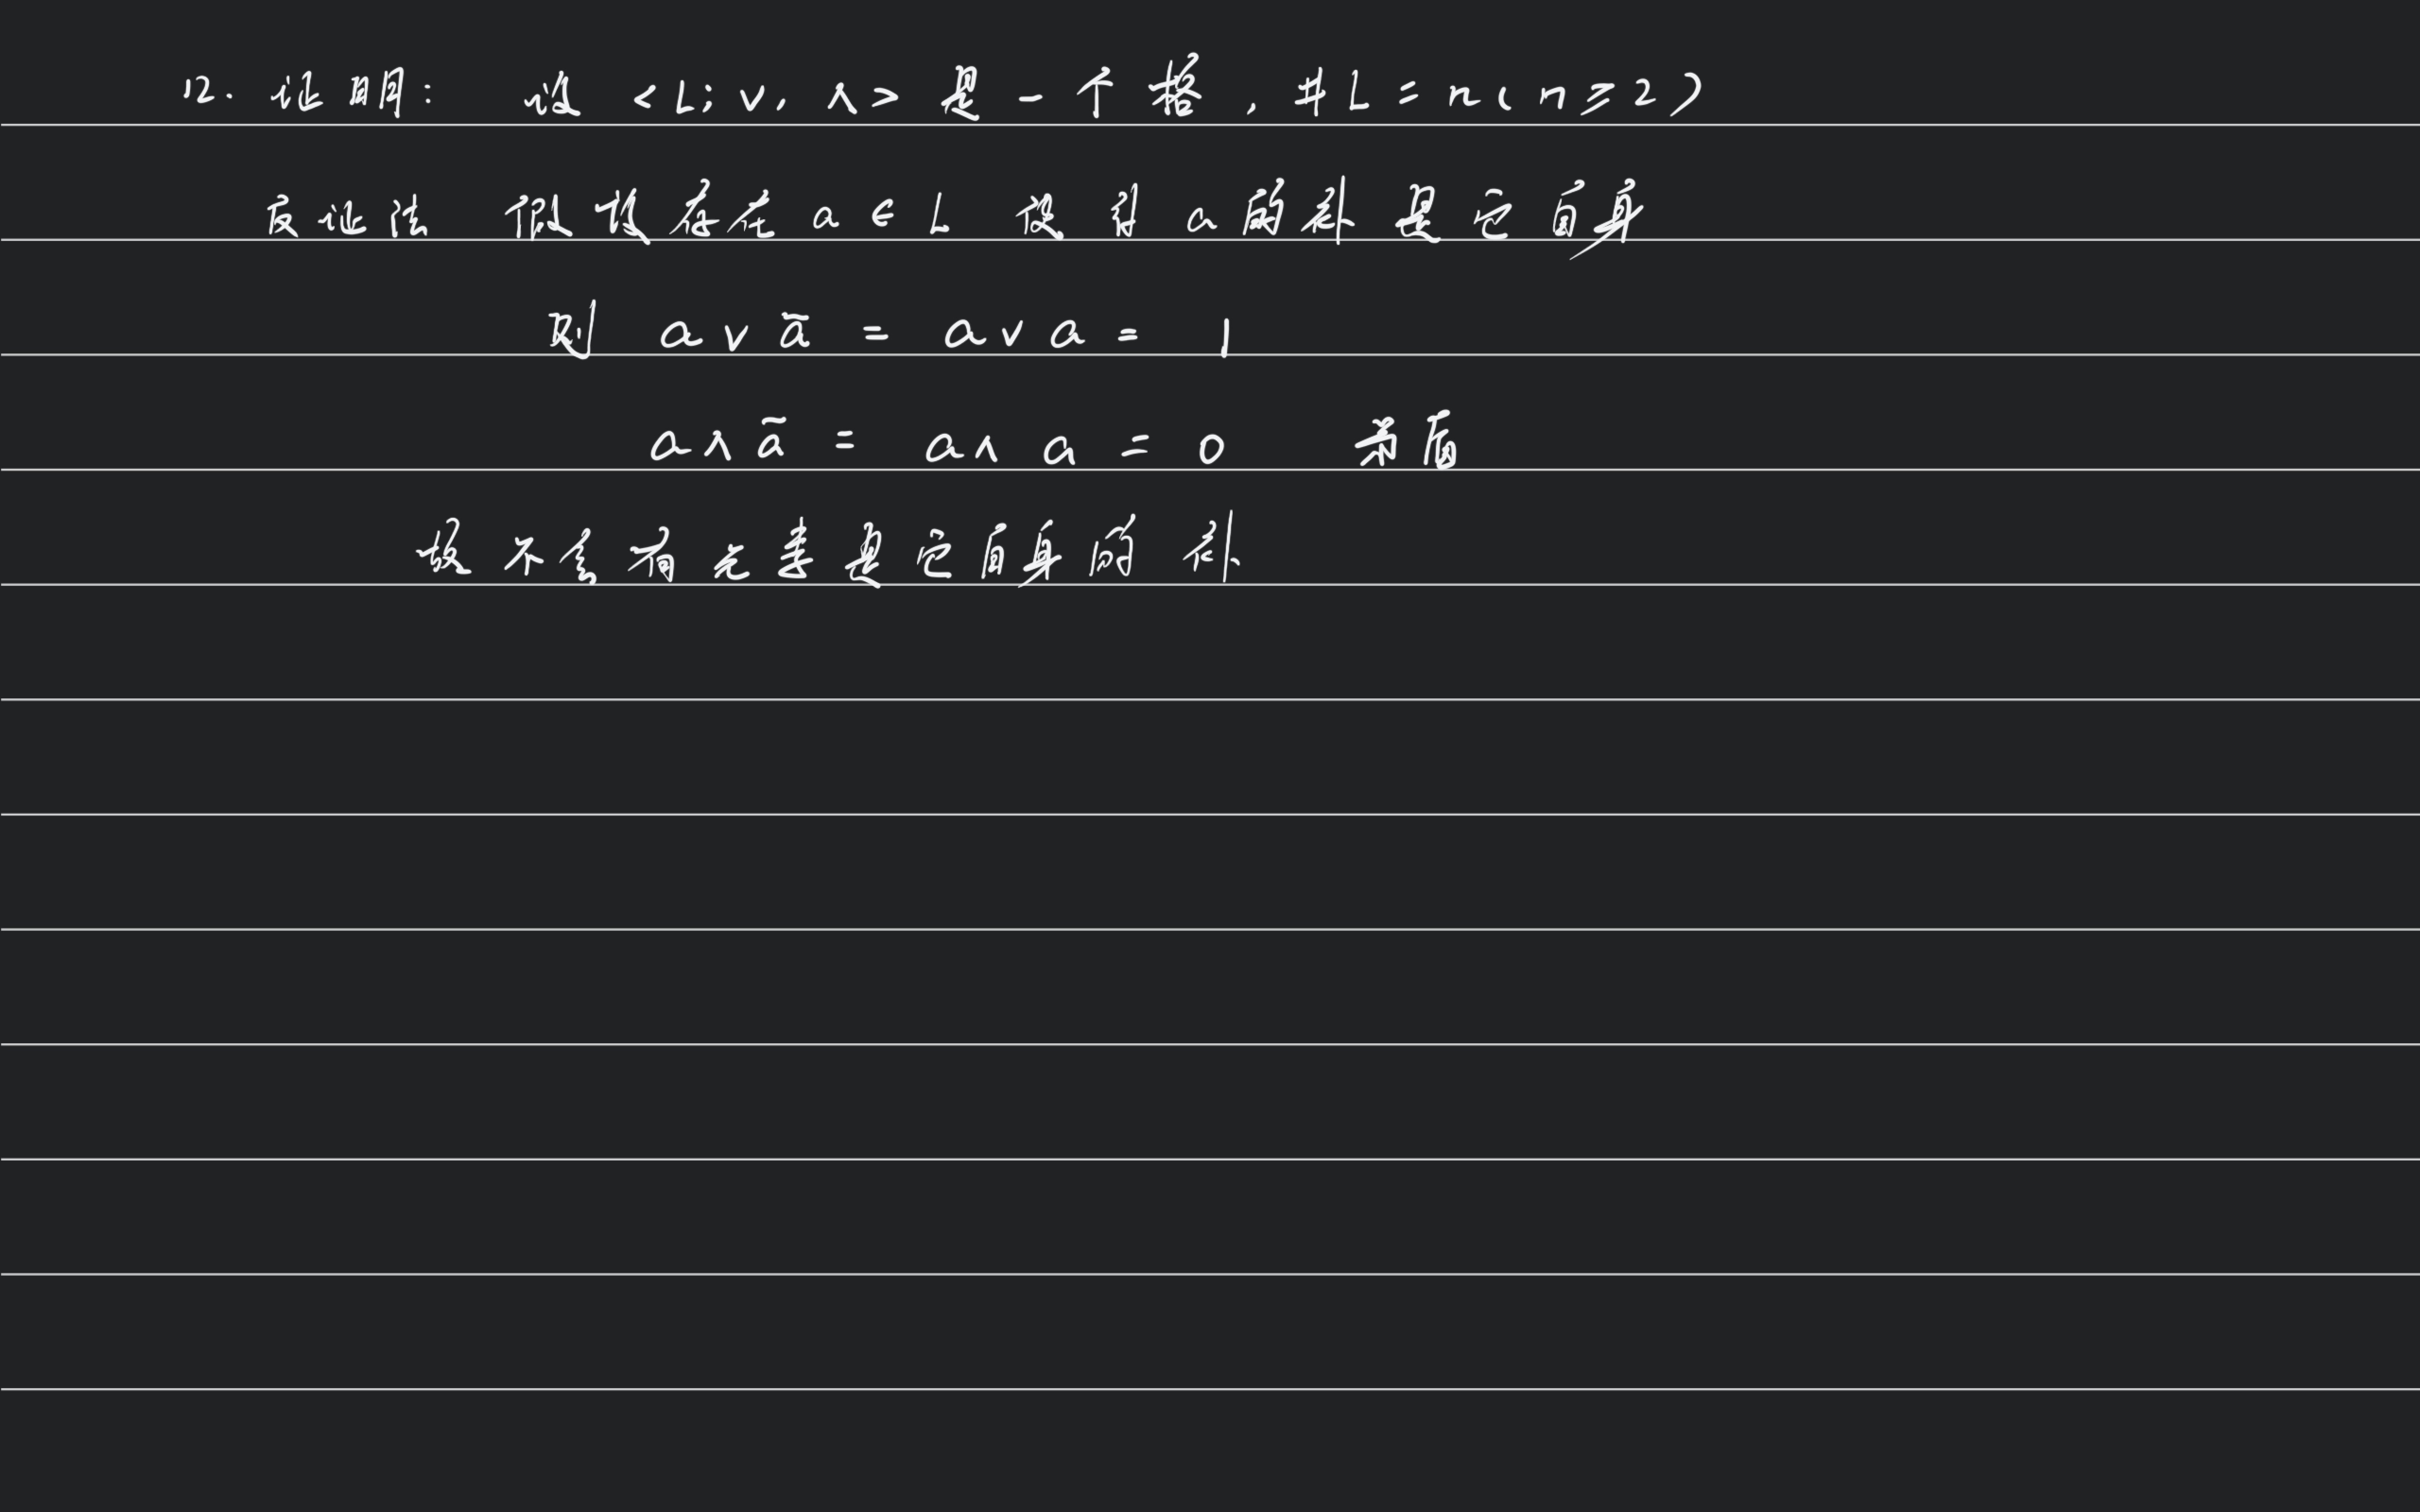 12. 证明: 设 <L; ∨, ∧> 是一个格, #L = n (n ≥ 2)
反证法 假设存在 a ∈ L 使得 a 的补是它自身
则 a ∨ ā = a ∨ a = 1
a ∧ ã = a ∧ a = 0 矛盾
故不会有元素是它自身的补